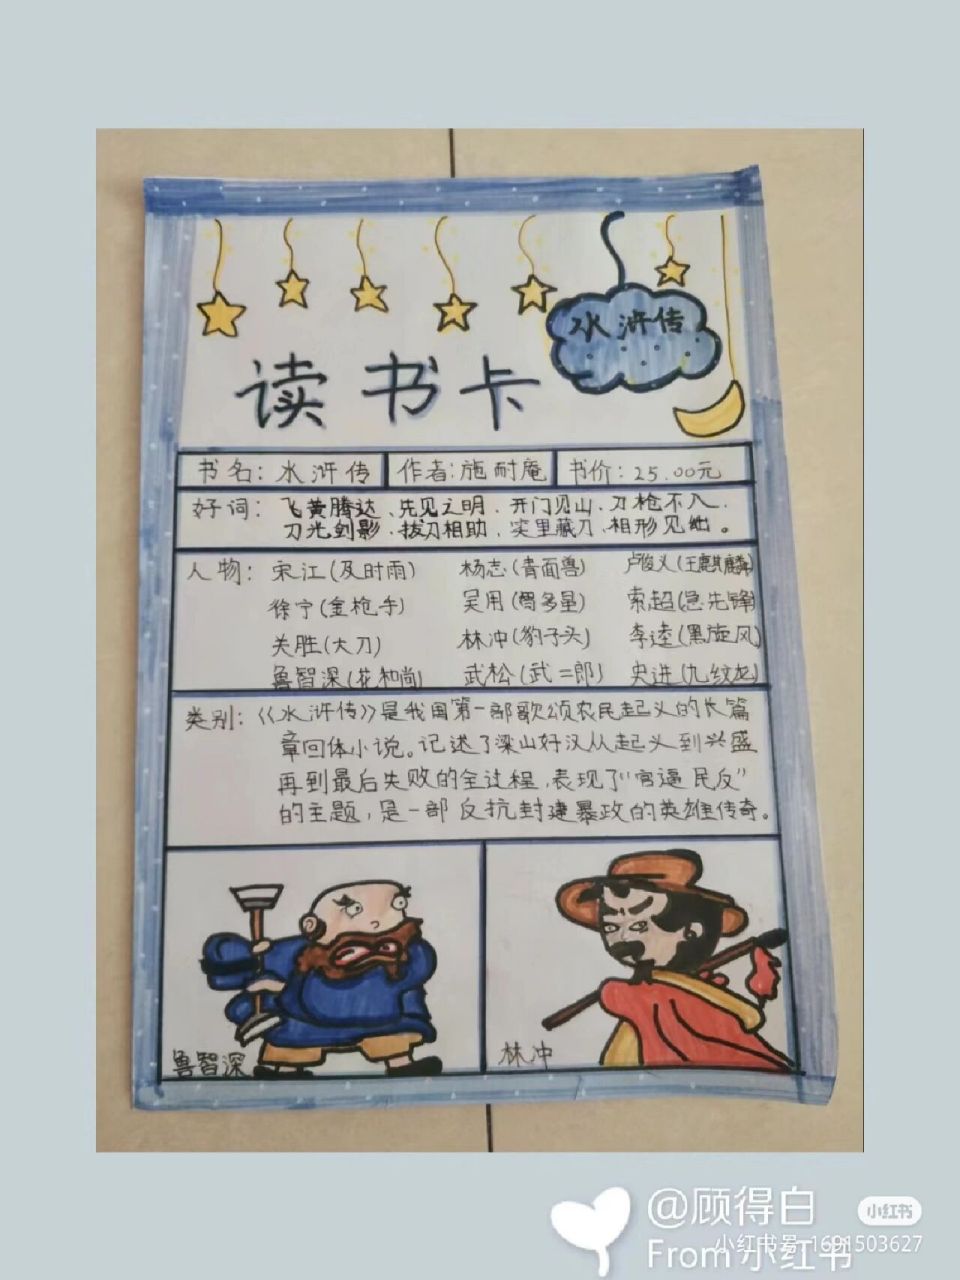 水浒传
读书卡
书名：水浒传 作者：施耐庵 书价：25.00元
好词：飞黄腾达、先见之明、开门见山、刀枪不入、
刀光剑影、拔刀相助、笑里藏刀、相形见绌。
人物：宋江(及时雨) 杨志(青面兽) 卢俊义(玉麒麟)
徐宁(金枪手) 吴用(智多星) 索超(急先锋)
关胜(大刀) 林冲(豹子头) 李逵(黑旋风)
鲁智深(花和尚) 武松(武二郎) 史进(九纹龙)
类别：《水浒传》是我国第一部歌颂农民起义的长篇
章回体小说。记述了梁山好汉从起义到兴盛
再到最后失败的全过程，表现了“官逼民反”
的主题，是一部反抗封建暴政的英雄传奇。
鲁智深
林冲
@顾得白 小红书
小红书号 1691503627
From 小红书